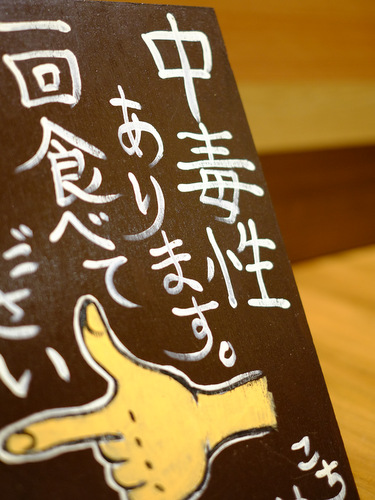 中毒性
あります。
一回食べて
ださい
こち